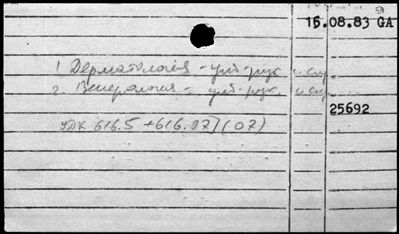 16.08.83 GA
1 Дерматологія - учб-рук и сир.
2. Венерологія - учб-рук. и сир.
25692
УДК 616.5 + 616.97](07)